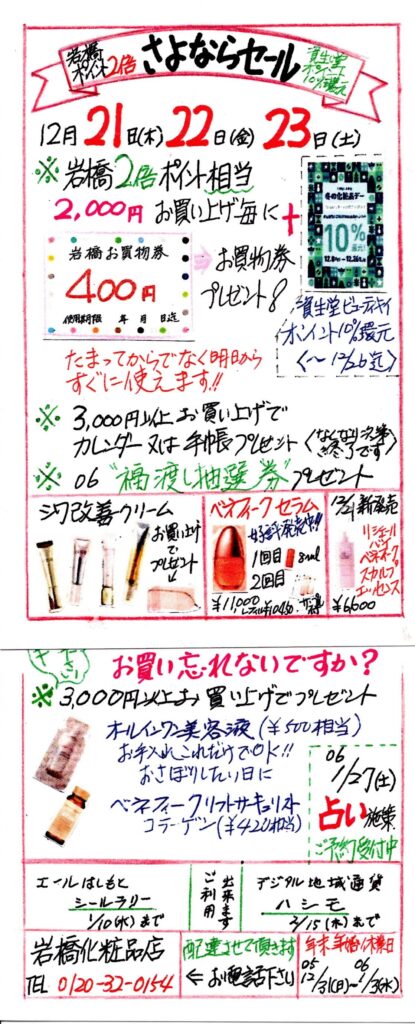 岩橋
ポイント2倍
さよならセール
資生堂
ポイント
10%還元
12月21日(木)22日(金)23日(土)
※岩橋2倍ポイント相当
2,000円お買い上げ毎に
+
冬の化粧品デー
10%
還元
岩橋お買物券
400円
使用期限 年 月 日迄
お買物券
プレゼント
資生堂ビューティキイ
ポイント10%還元
<〜12/26迄>
たまってからでなく明日から
すぐに使えます!!
※3,000円以上お買い上げで
カレンダー又は手帳プレゼント
<なくなり次第
終了です>
※06"福渡し抽選券"プレゼント
シワ改善クリーム
お買い上げ
で
プレゼント
ベネフィークセラム
1回目
2回目
¥11,000
12/21新発売
リシェール
バイ
ベネフィーク
スカルプ
エッセンス
¥6,600
お買い忘れないですか?
※3,000円以上お買い上げでプレゼント
オールインワン美容液(¥500相当)
お手入れこれだけでOK!!
おさぼりしたい日に
ベネフィークリフトサーキュリスト
コラーゲン(¥420相当)
06
1/27(土)
占い施策
ご予約受付中
エールはしもと
シールラリー
1/10(水)まで
出来ます
ご利用
デジタル地域通貨
ハシモ
2/15(木)まで
岩橋化粧品店
TEL 0120-32-0154
配達させて頂きます
⇐お電話下さい
年末年始休業日
05 06
12/31(日)~1/3(水)